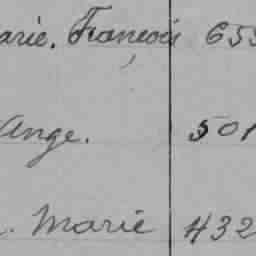 arie. François 655
Ange. 501
. Marie 432